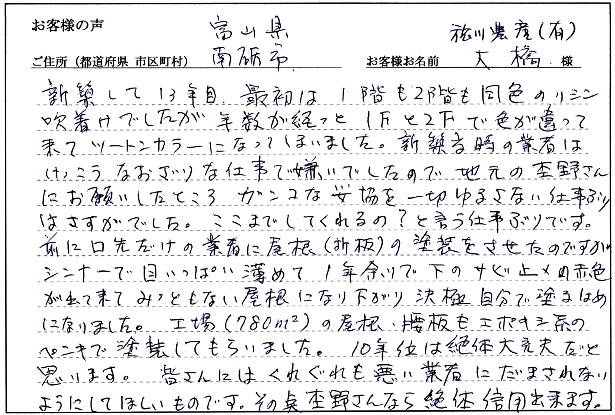 お客様の声 富山県 祐川農産(有)
ご住所(都道府県 市区町村) 南砺市 お客様お名前 大橋 様
新築して13年目、最初は1階も2階も同色のリシン
吹着けでしたが年数が経っと1Fと2Fで色が違って
来てツートンカラーになってしまいました。新築当時の業者は
けっこうなおざりな仕事で嫌いでしたので地元の杢野さん
にお願いしたところガンコな妥協を一切ゆるさない仕事ぶり
はさすがでした。ここまでしてくれるの?と言う仕事ぶりです。
前に口先だけの業者に屋根(折板)の塗装をさせたのですが
シンナーで目いっぱい薄めて1年余りで下のサビ止メの赤色
が出て来てみっともない屋根になり下がり決極自分で塗るはめ
になりました。工場(780m²)の屋根、腰板もエポキシ系の
ペンキで塗装してもらいました。10年位は絶体大丈夫だと
思います。皆さんにはくれぐれも悪い業者にだまされない
ようにしてほしいものです。その点杢野さんなら絶体信用出来ます。